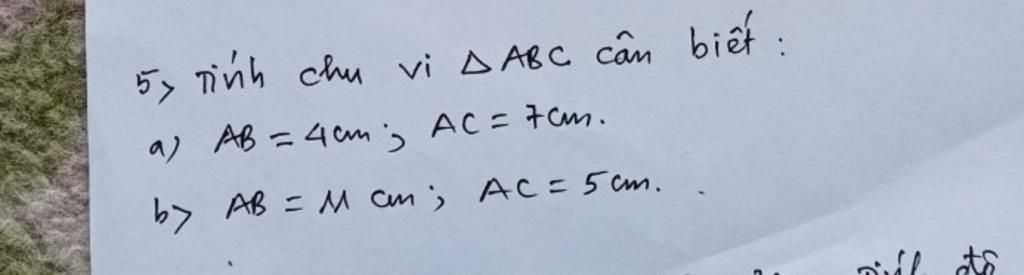 5> Tính chu vi Δ ABC cân biết :
a) AB = 4cm ; AC = 7cm.
b> AB = 11 cm ; AC = 5cm.